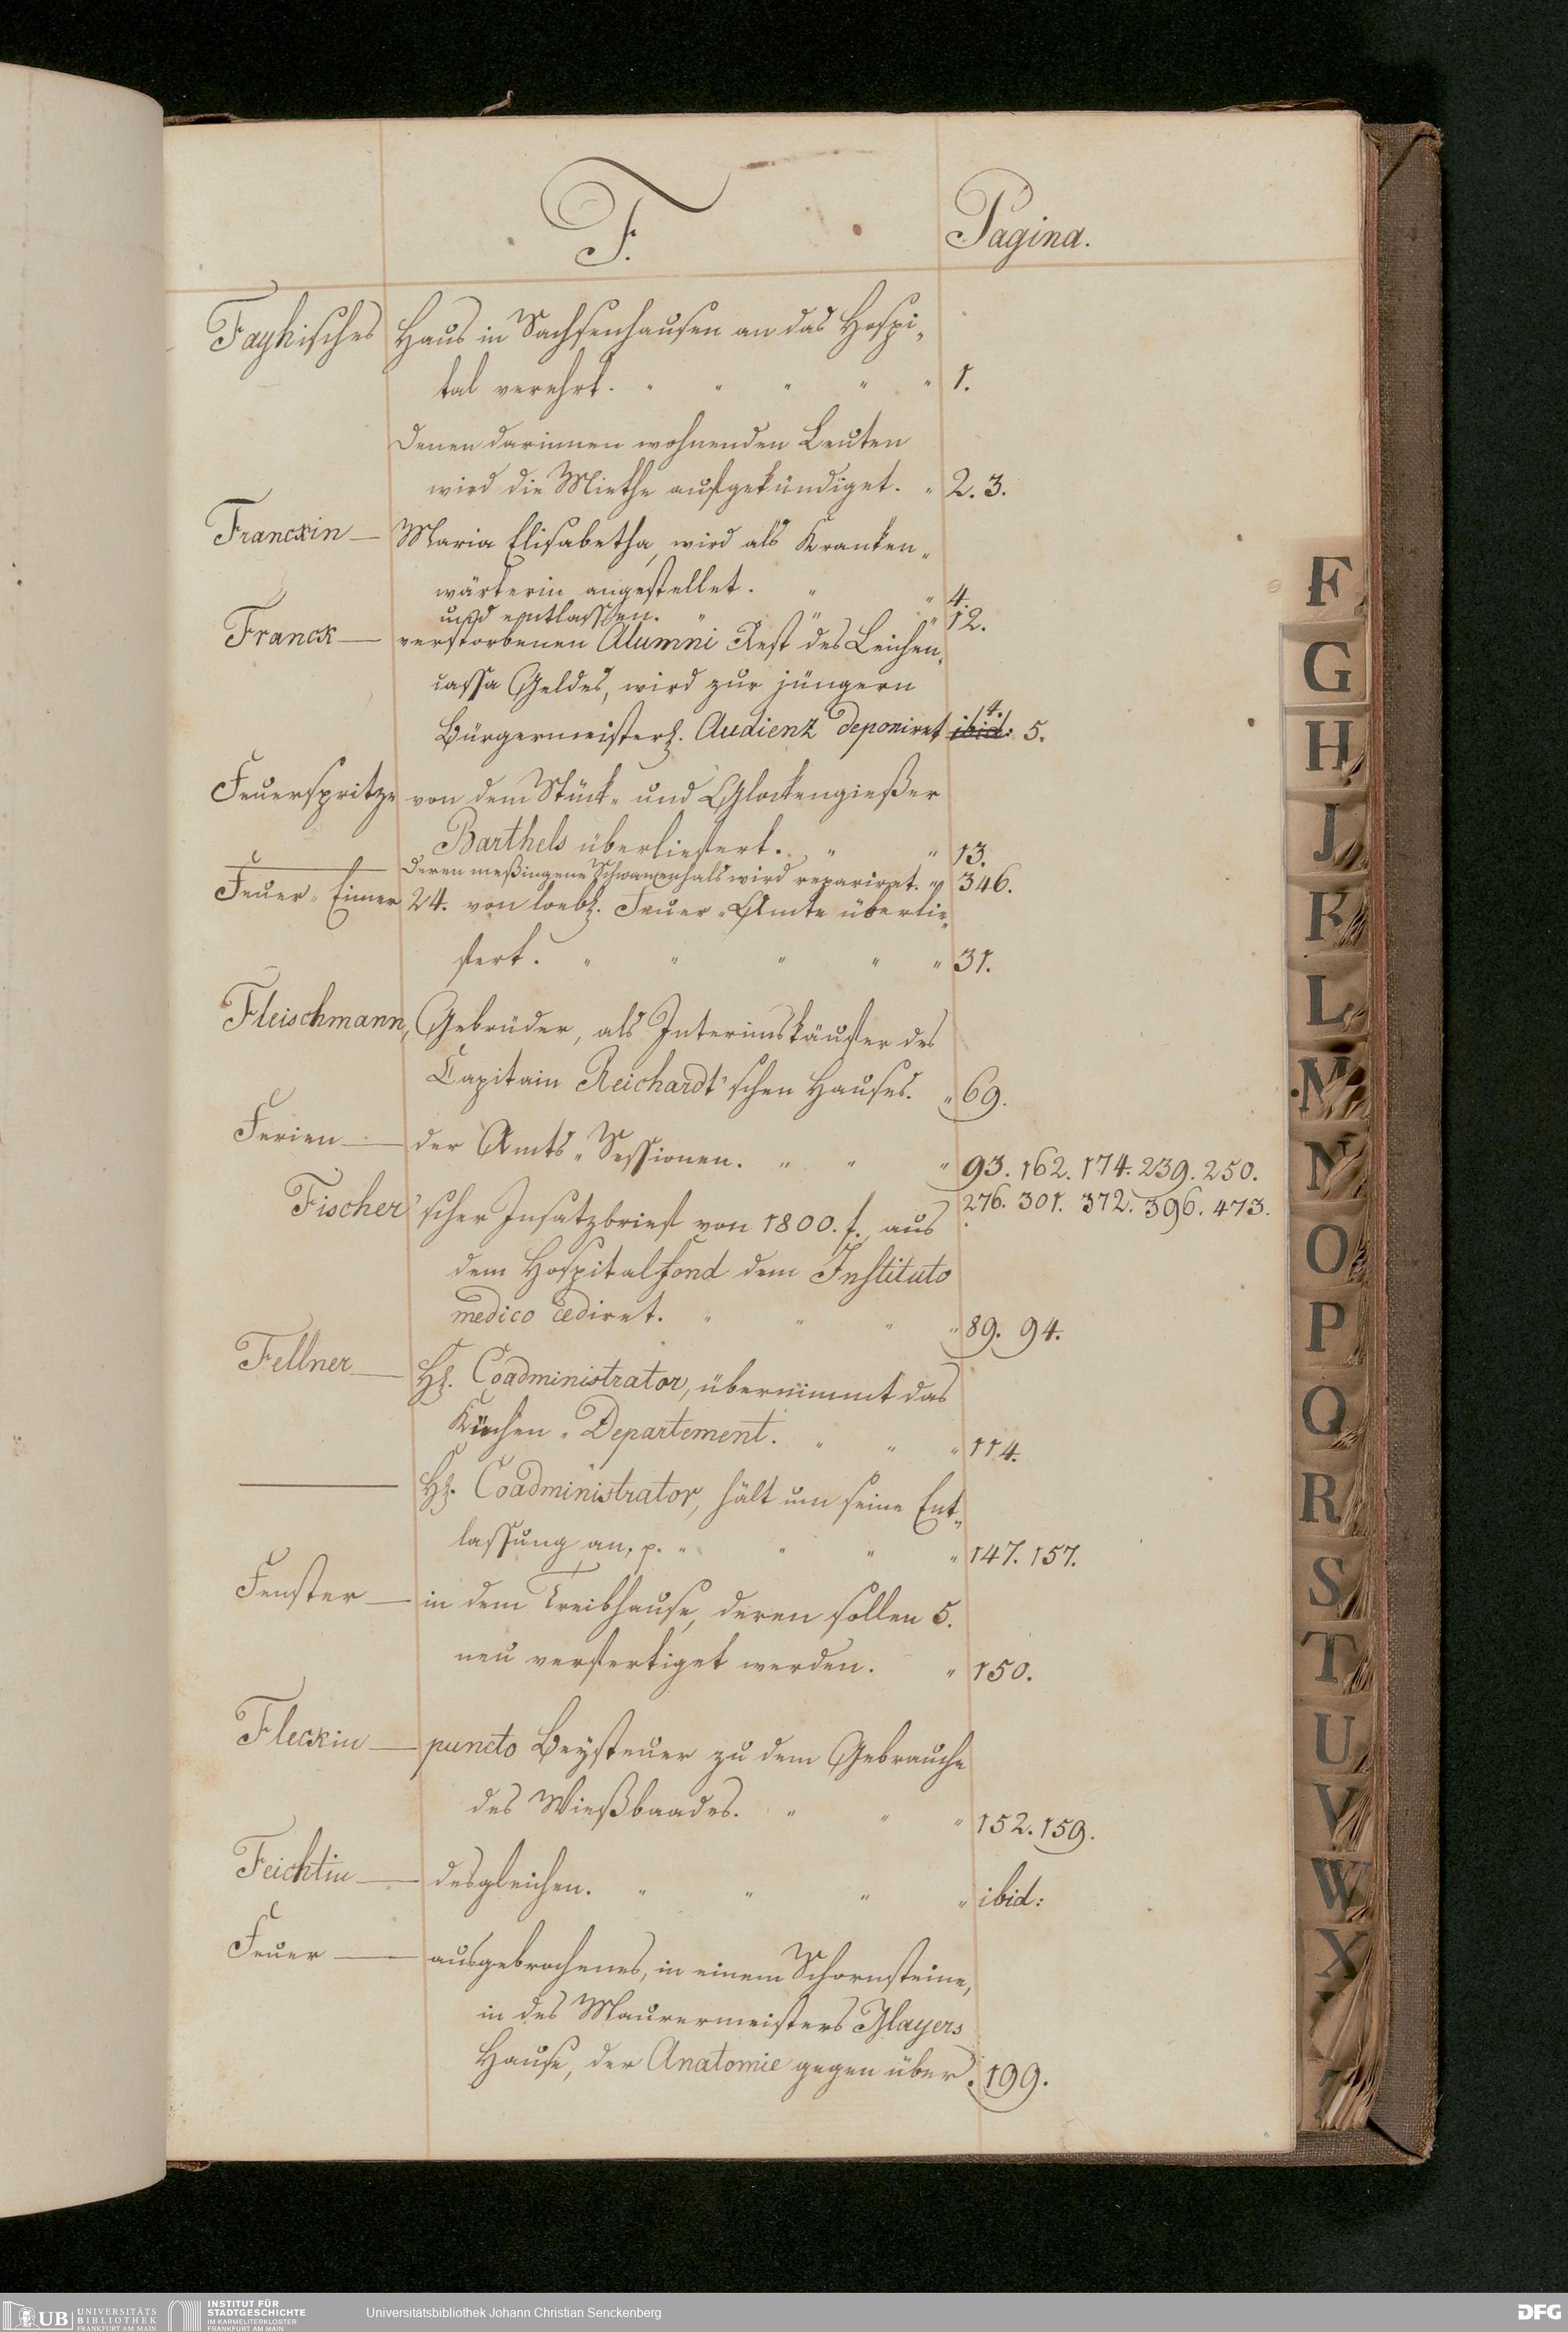 F.
Pagina.
Fayhisches Haus in Sachsenhausen an das Hospi„
tal verehrt. „ „ „ „ „ 1.
Denen darinnen wohnenden Leuten
wird die Miethe aufgekündiget. „ 2. 3.
Franckin — Maria Elisabetha, wird als Kranken„
wärterin angestellet. „ „ 4.
und entlassen. „ „ „ 12.
Franck — verstorbenen Alumni Rest des Leichen„
cassa Geldes, wird zur jüngern
Bürgermeisterl. Audienz deponiret ibid: 4. 5.
Feuerspritze von dem Stück„ und Glockengießer
Barthels überliefert. „ „ 13.
— deren meßingene Schwanenhals wird repariret. „ 346.
Feuer„Eimer 24. von loebl. Feuer„Amte überlie„
fert. „ „ „ „ „ 31.
Fleischmann, Gebrüder, als Interimskäufer des
Capitain Reichardt'schen Hauses. „ 69.
Ferien — der Amts„Sessionen. „ „ „ 93. 162. 174. 239. 250.
276. 301. 372. 396. 473.
Fischer'scher Insatzbrief von 1800. f. aus
dem Hospitalfond dem Instituto
medico cediret. „ „ „ „ 89. 94.
Fellner — H. Coadministrator, übernimmt das
Küchen„Departement. „ „ „ 114.
— H. Coadministrator, hält um seine Ent„
lassung an, p. „ „ „ „ 147. 157.
Fenster — in dem Treibhause, deren sollen 5.
neu verfertiget werden. „ 150.
Fleckin — puncto Beysteuer zu dem Gebrauche
des Wießbaades. „ „ „ 152. 159.
Feichtin — desgleichen. „ „ „ „ ibid:
Feuer — ausgebrochenes, in einem Schornsteine,
in des Maurermeisters
Hause, der Anatomie gegen über. 199.
F
G
H
J
K
L
M
N
O
P
Q
R
S
T
U
V
W
X
UB UNIVERSITÄTS
BIBLIOTHEK
FRANKFURT AM MAIN
INSTITUT FÜR
STADTGESCHICHTE
IM KARMELITERKLOSTER
FRANKFURT AM MAIN
Universitätsbibliothek Johann Christian Senckenberg
DFG